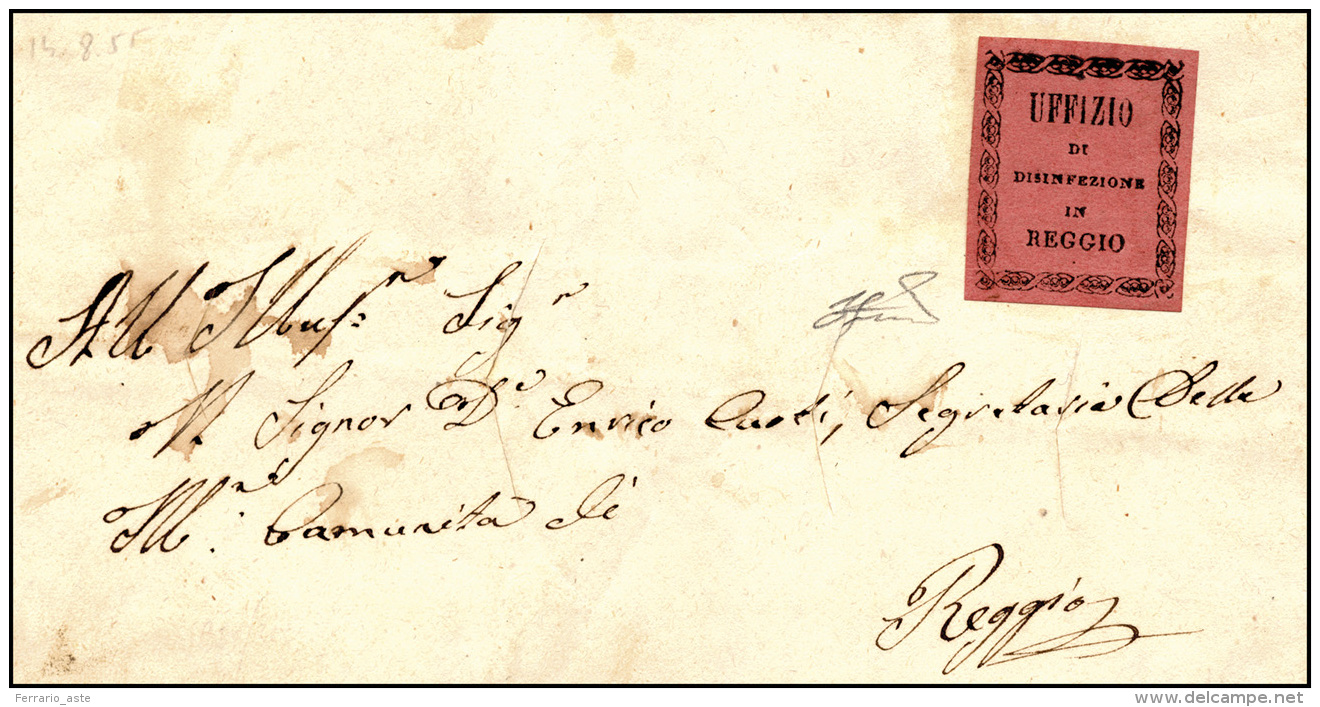 14.8.55
UFFIZIO
DI
DISINFEZIONE
IN
REGGIO
All Illuss. Sig.r
Il Signor D.r Enrico Casti, Segretario Della
Ill. Comunità di
Reggio
Ferrario_aste
www.delcampe.net